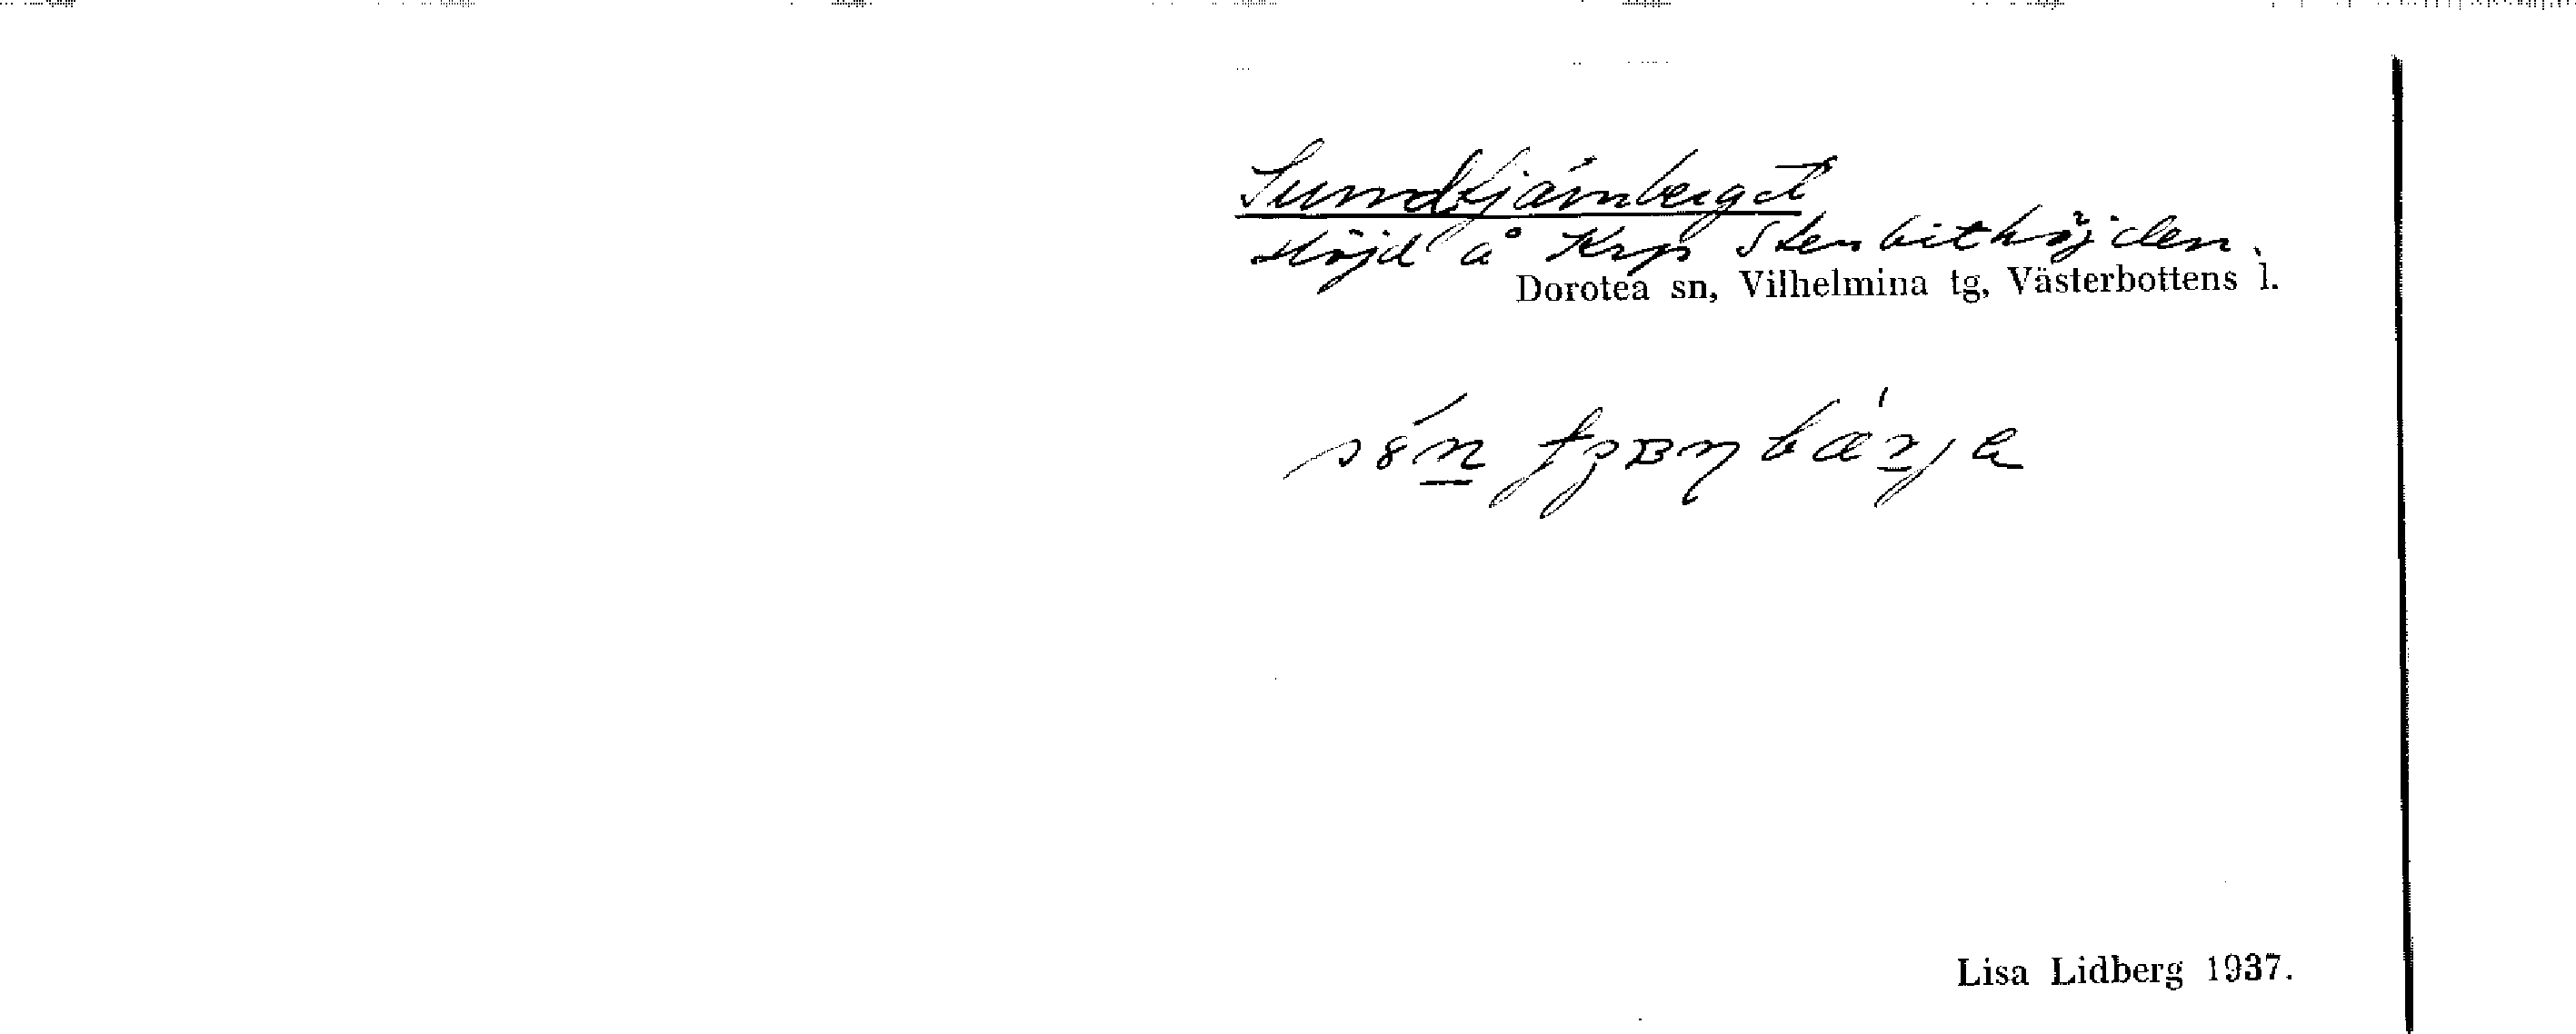 Sundtjärnberget
Höjd å Krp Stenbithöjden.
Dorotea sn, Vilhelmina tg, Västerbottens l.
Lisa Lidberg 1937.